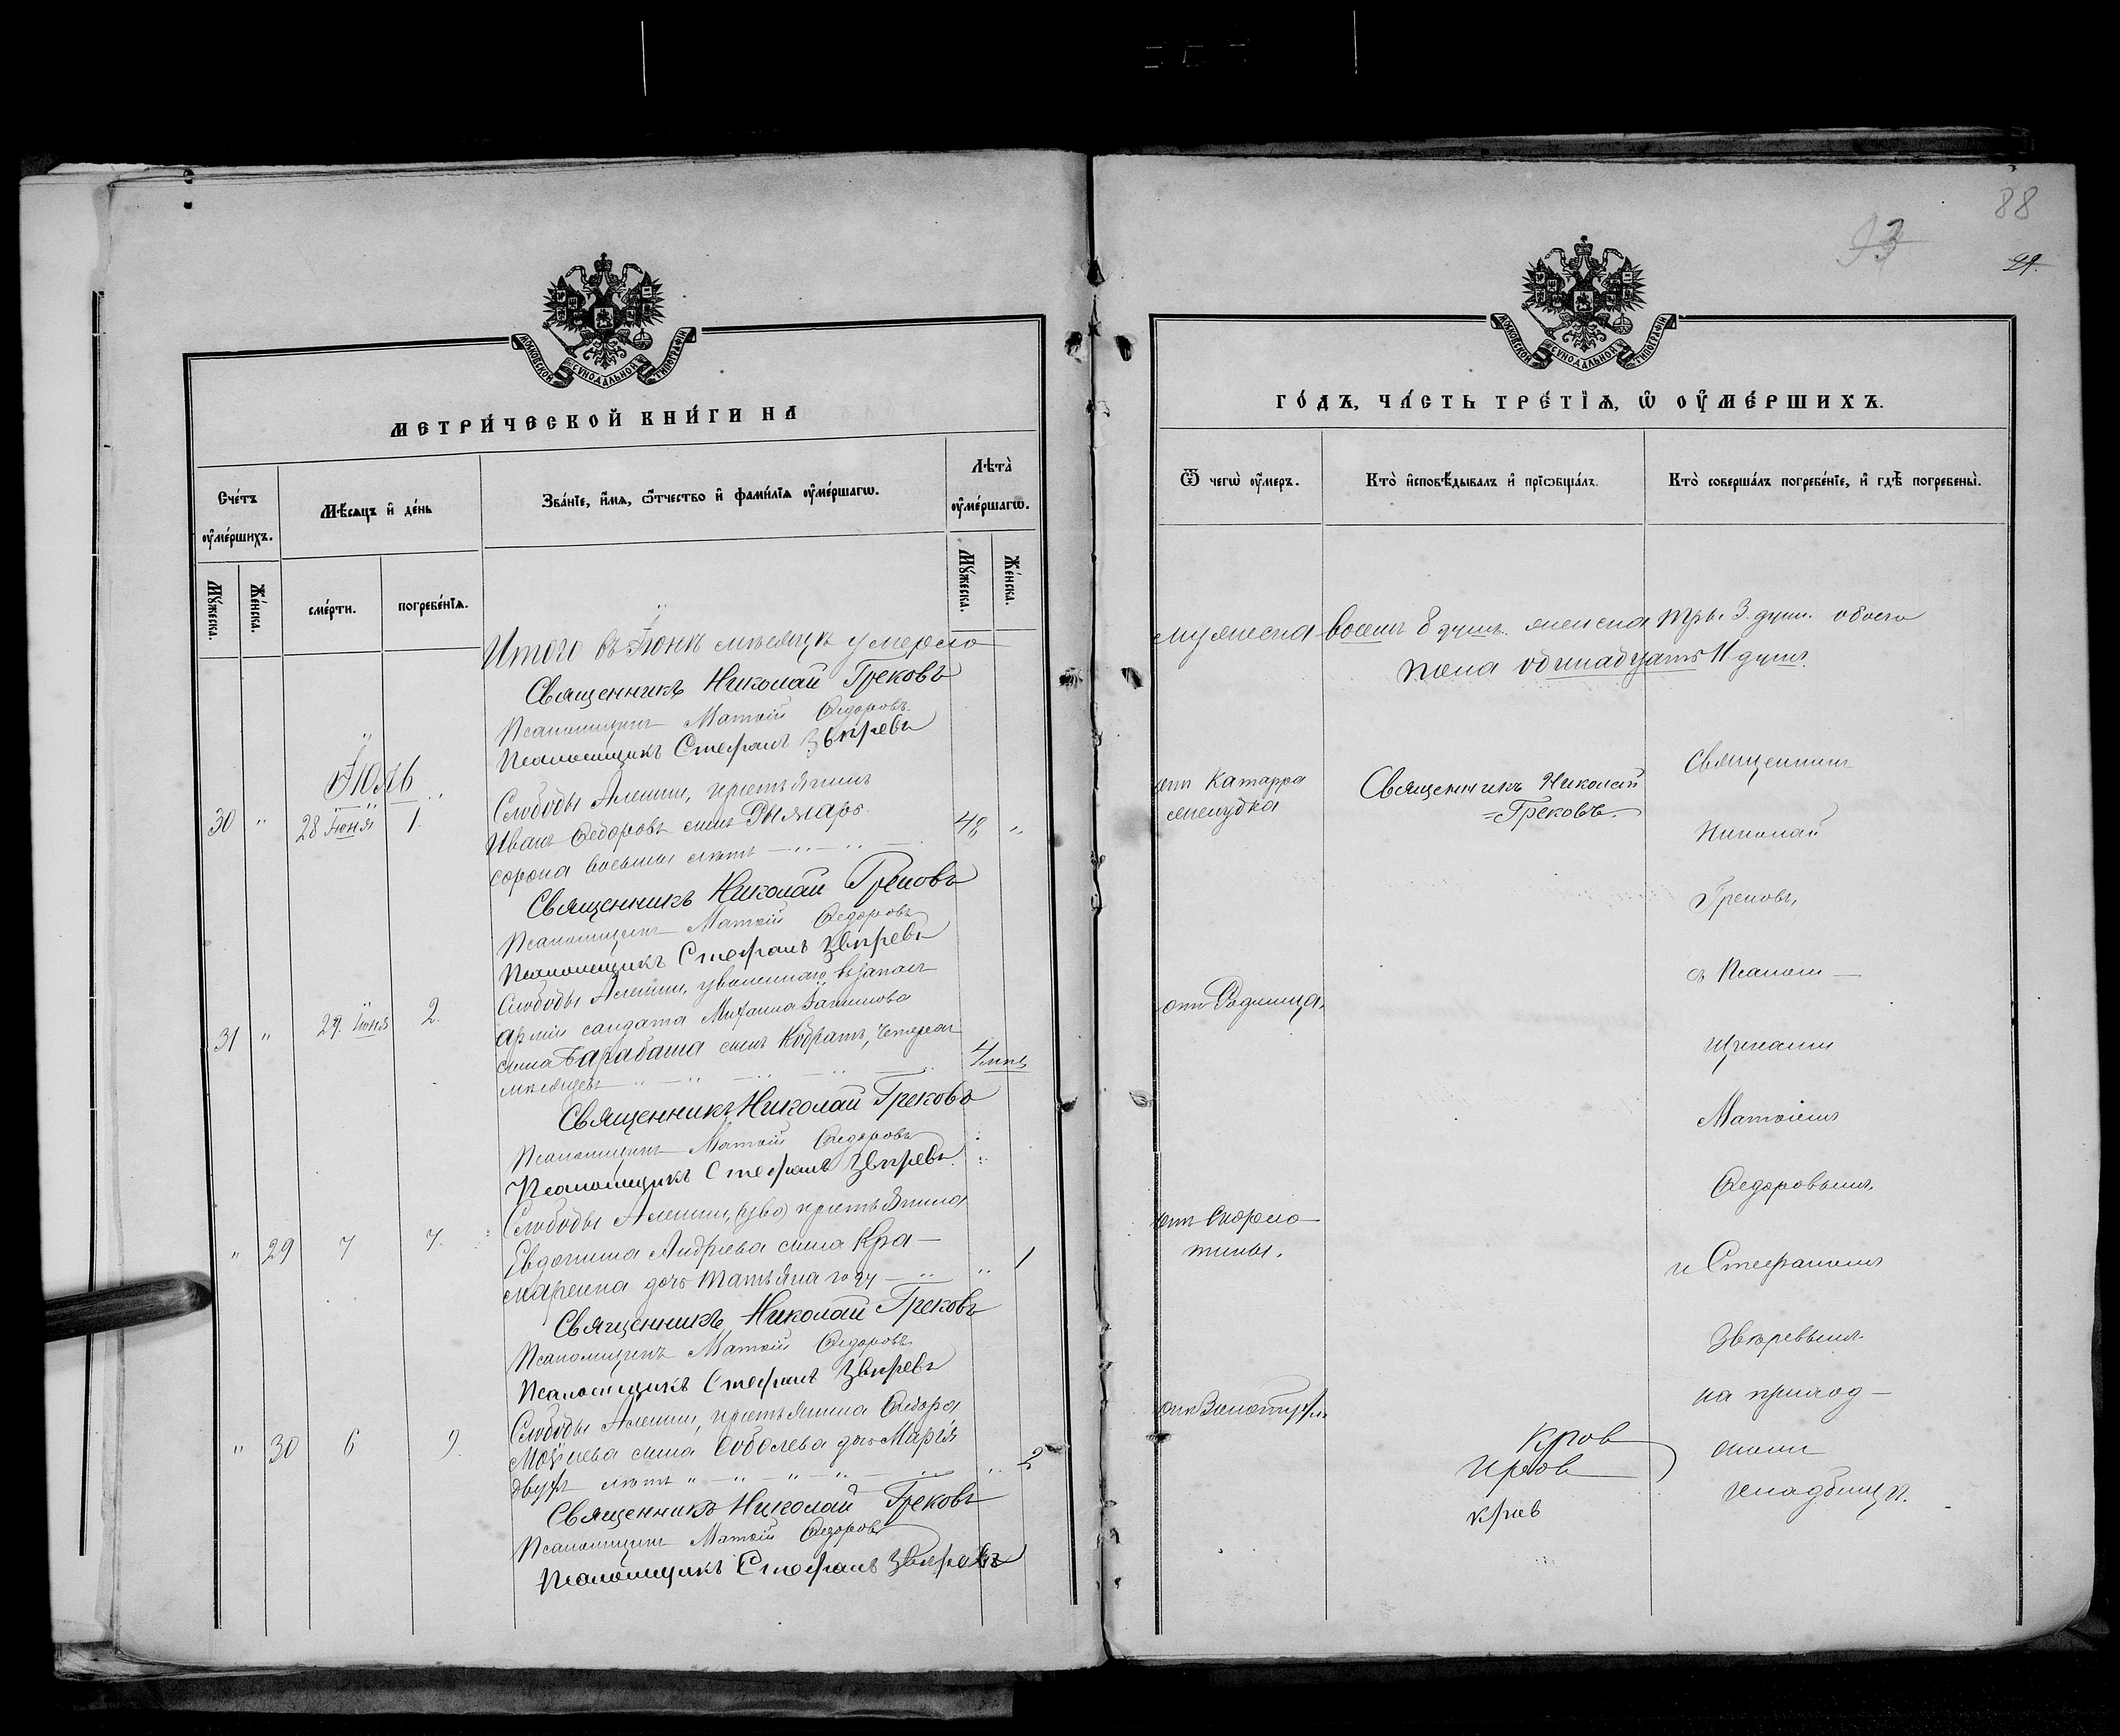 88
93
99.
МОСКОВСКОЙ СУНОДАЛЬНОЙ ТИПОГРАФІИ
МЕТРИ́ЧЕСКОЙ КНИ́ГИ НА
Сче́тъ оу҆ме́ршихъ.
Мѣ́сяцъ и҆ де́нь
Зва́нїе, и҆́мѧ, ѻ҆́тчество и҆ фами́лїѧ оу҆ме́ршагѡ.
Лѣта̀ оу҆ме́ршагѡ.
Мꙋ́жеска.
Же́нска.
сме́рти.
погребе́нїѧ.
Мꙋ́жеска.
Же́нска.
Итого въ Іюнѣ мѣсяцѣ умерло
Священникъ Николай Грековъ
Псаломщикъ Матѳій Ѳедоровъ
Псаломщикъ Стефанъ Звѣревъ
Іюль
30 " 28 Іюня 1.
Слободы Алешни, крестьянинъ
Иванъ Ѳедоровъ сынъ Рымаръ
сорока восьми лѣтъ 48 "
Священникъ Николай Грековъ
Псаломщикъ Матѳій Ѳедоровъ
Псаломщикъ Стефанъ Звѣревъ
31 " 29. Іюня 2.
Слободы Алешни, уволеннаго въ запасъ
арміи солдата Михаила
сына Барабаша сынъ Кодратъ, четырехъ
мѣсяцевъ 4 мѣс
Священникъ Николай Грековъ
Псаломщикъ Матѳій Ѳедоровъ
Псаломщикъ Стефанъ Звѣревъ.
" 29 7 7.
Слободы Алешни, крестьянина
Евдокима Андреева сына Кра-
маренка дочь Татьяна году " 1
Священникъ Николай Грековъ
Псаломщикъ Матѳій Ѳедоровъ
Псаломщикъ Стефанъ Звѣревъ
" 30 6 9.
Слободы Алешни, крестьянина Ѳедора
Моѵсеева сына Соболева дочь Марія
двухъ лѣтъ " 2
Священникъ Николай Грековъ
Псаломщикъ Матѳій Ѳедоровъ
Псаломщикъ Стефанъ Звѣревъ
МОСКОВСКОЙ СУНОДАЛЬНОЙ ТИПОГРАФІИ
ГО́ДЪ, ЧА́СТЬ ТРЕ́ТЇѦ, Ѡ҆ ОУ҆МЕ́РШИХЪ.
Ѿ чегѡ̀ оу҆́меръ.
Кто̀ и҆сповѣ́дывалъ и҆ прїѡбща́лъ.
Кто̀ соверша́лъ погребе́нїе, и҆ гдѣ̀ погребены̀.
мужеска восемь 8 душъ. женска три 3. души. обоего
пола одинадцать 11 душъ.
отъ Катарра
желудка
Священникъ Николай
Грековъ.
отъ Родимца.
отъ Скарла-
тины.
отъ
Священникъ
Николай
Грековъ,
съ Псалом-
щиками
Матѳіемъ
Ѳедоровымъ
и Стефаномъ
Звѣревымъ
на приход-
скомъ
кладбищѣ.